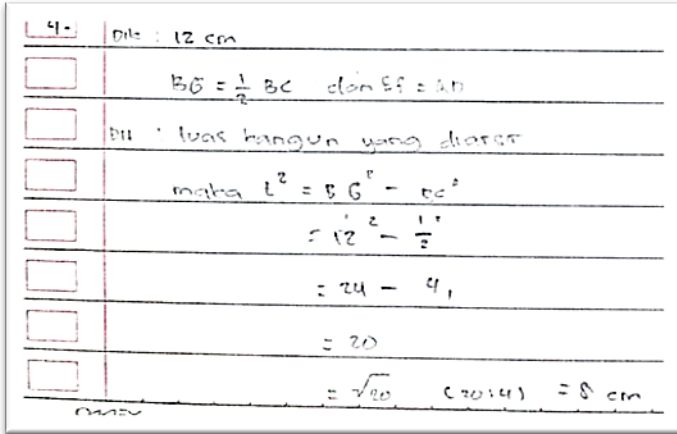 4. Dik : 12 cm
BG = 1/2 BC dan Ef = AD
Dit : luas bangun yang diarsir
maka L² = BG² - BC²
= 12² - 1/2²
= 24 - 4,
= 20
= √20 (20:4) = 5 cm